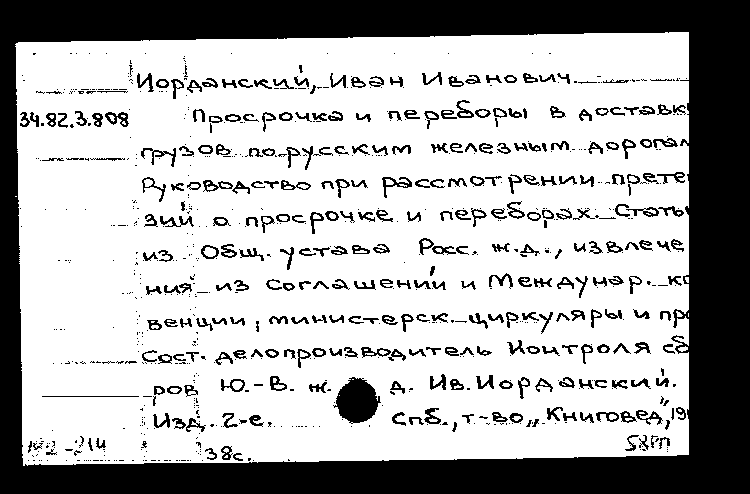 Иорданский, Иван Иванович.
34.82.3.808 Просрочка и переборы в доставк
грузов по русским железным дорогам
Руководство при рассмотрении прете
зий о просрочке и переборах. Статьи
из Общ. устава Росс. ж.д., извлече
ния из Соглашений и Междунар. ко
венции, министерск. циркуляры и про
Сост. делопроизводитель Контроля сб
ров Ю.-В. ж. д. Ив. Иорданский.
Изд. 2-е. Спб., т-во „Книговед", 191
38с. 58РП